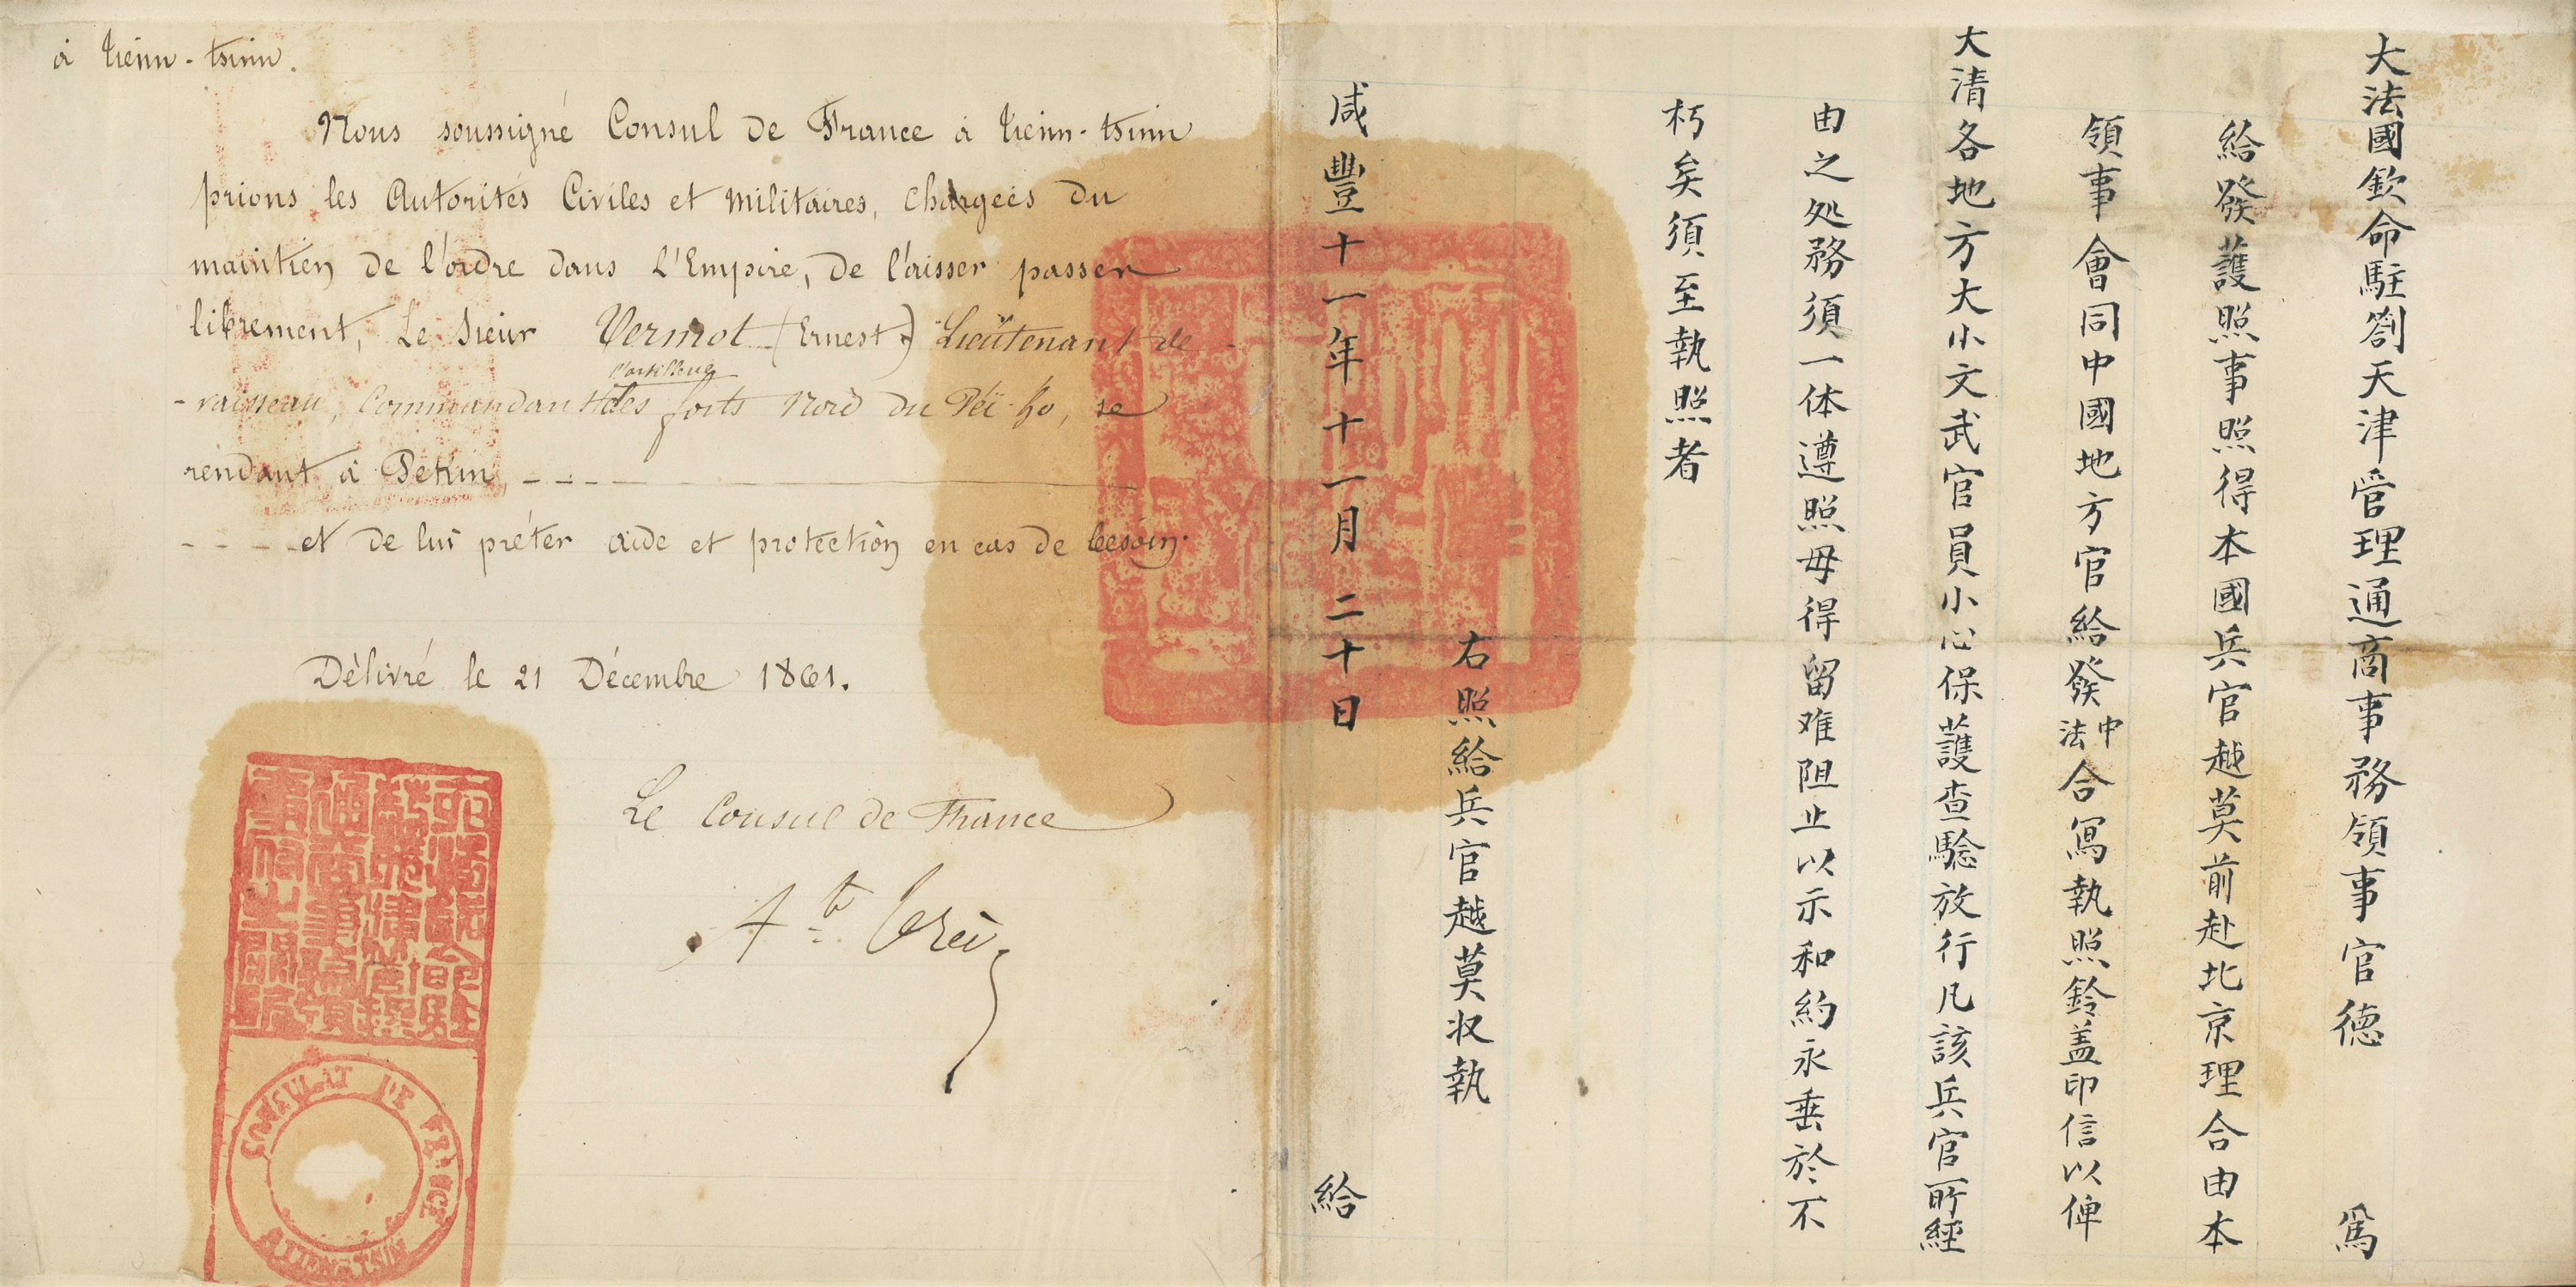 à tienn-tsinn.
Nous soussigné Consul de France à tienn-tsinn
prions les Autorités Civiles et Militaires, chargées du
maintien de l'ordre dans l'Empire, de laisser passer
librement, Le Sieur Vermot (Ernest) Lieutenant de
- vaisseau, Commandant des forts Nord du Péï-ho, se
rendant à Pékin, - - - -
- - - - et de lui prêter aide et protection en cas de besoin.
Délivré le 21 Décembre 1861.
Le Consul de France
CONSULAT DE FRANCE
A TIEN-TSIN
大法國欽命駐劄天津管理通商事務領事官德 爲
給發護照事照得本國兵官越莫前赴北京理合由本
領事會同中國地方官給發中法合寫執照鈴盖印信以俾
大清各地方大小文武官員小心保護查驗放行凡該兵官所經
由之处務須一体遵照毋得留难阻止以示和約永垂於不
朽矣須至執照者
右照給兵官越莫收執
咸豐十一年十一月二十日 給